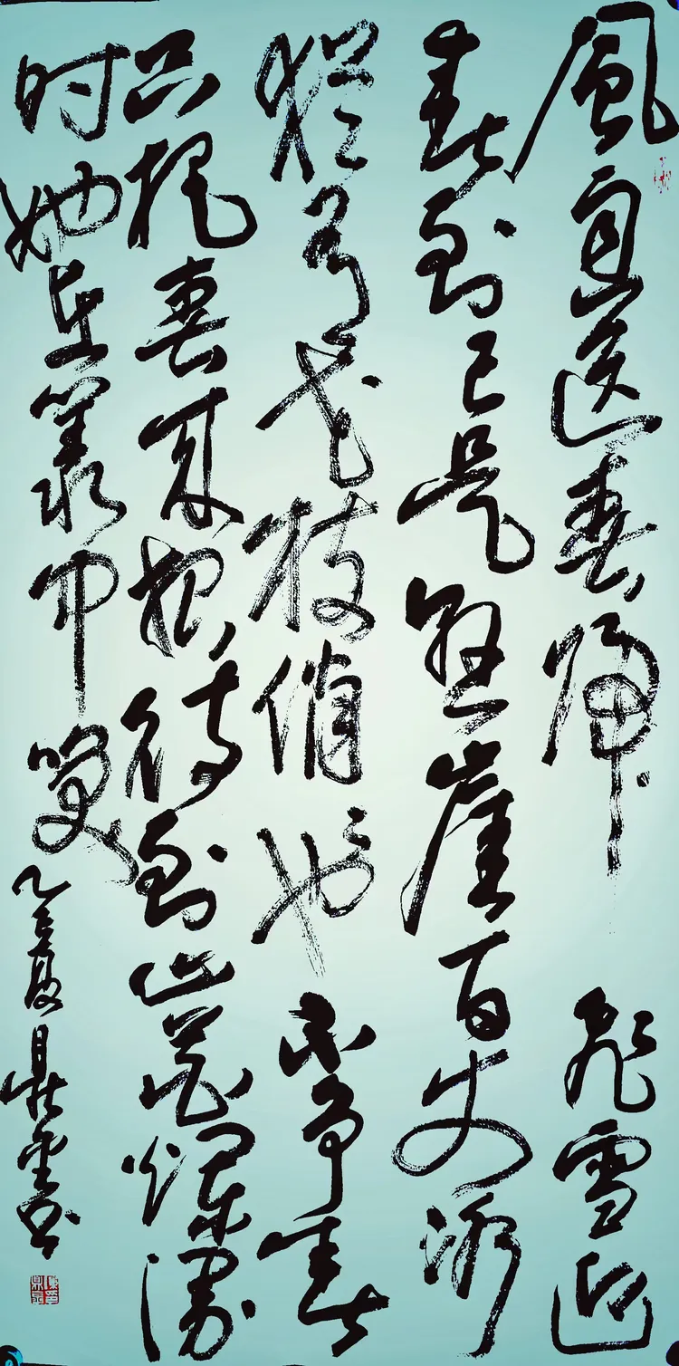 風雨送春歸飛雪迎
春到已是懸崖百丈冰
猶有花枝俏々也不争春
只把春来报待到山花爛漫
时她在叢中笑
乙巳夏鼎书